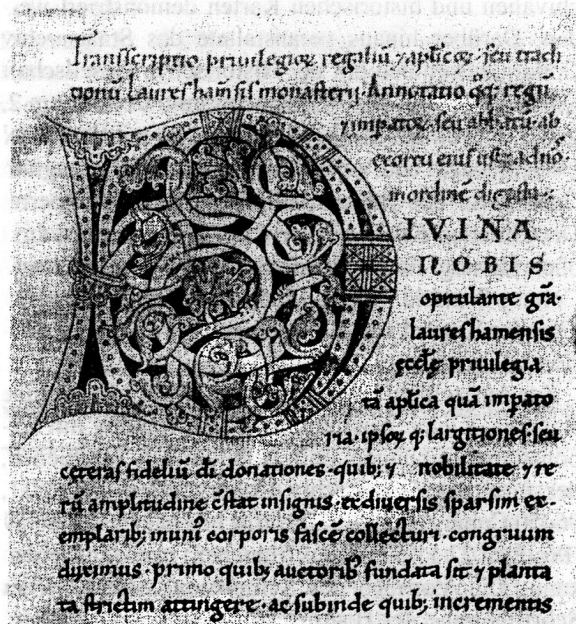 Transscriptio priuilegioꝝ regaliũ ⁊ apl̃icoꝝ · seu tradi
tionũ Laureshamsis monasterij · Annotatio q̊ꝗ regũ
⁊ impatoꝝ · seu abbatũ ab
exortu eiusdẽ usꝗ ad nõ ·
in ordinẽ digesta ·
DIVINA
NOBIS
opitulante gr̃a ·
laureshamensis
ęccl̃ę priuilegia
tã apl̃ica quã impato
ria · ipsoꝝ q; largitiones · seu
ceteras fideliũ di donationes · quib; ⁊ nobilitate ⁊ re
rũ amplitudine c̃stat insignis · ex diuersis sparsim ex
emplarib; in unũ corporis fascẽ collecturi · congruum
duximus · primo quib; auctorib; fundata sit ⁊ planta
ta strictim attingere · ac subinde quib; incrementis